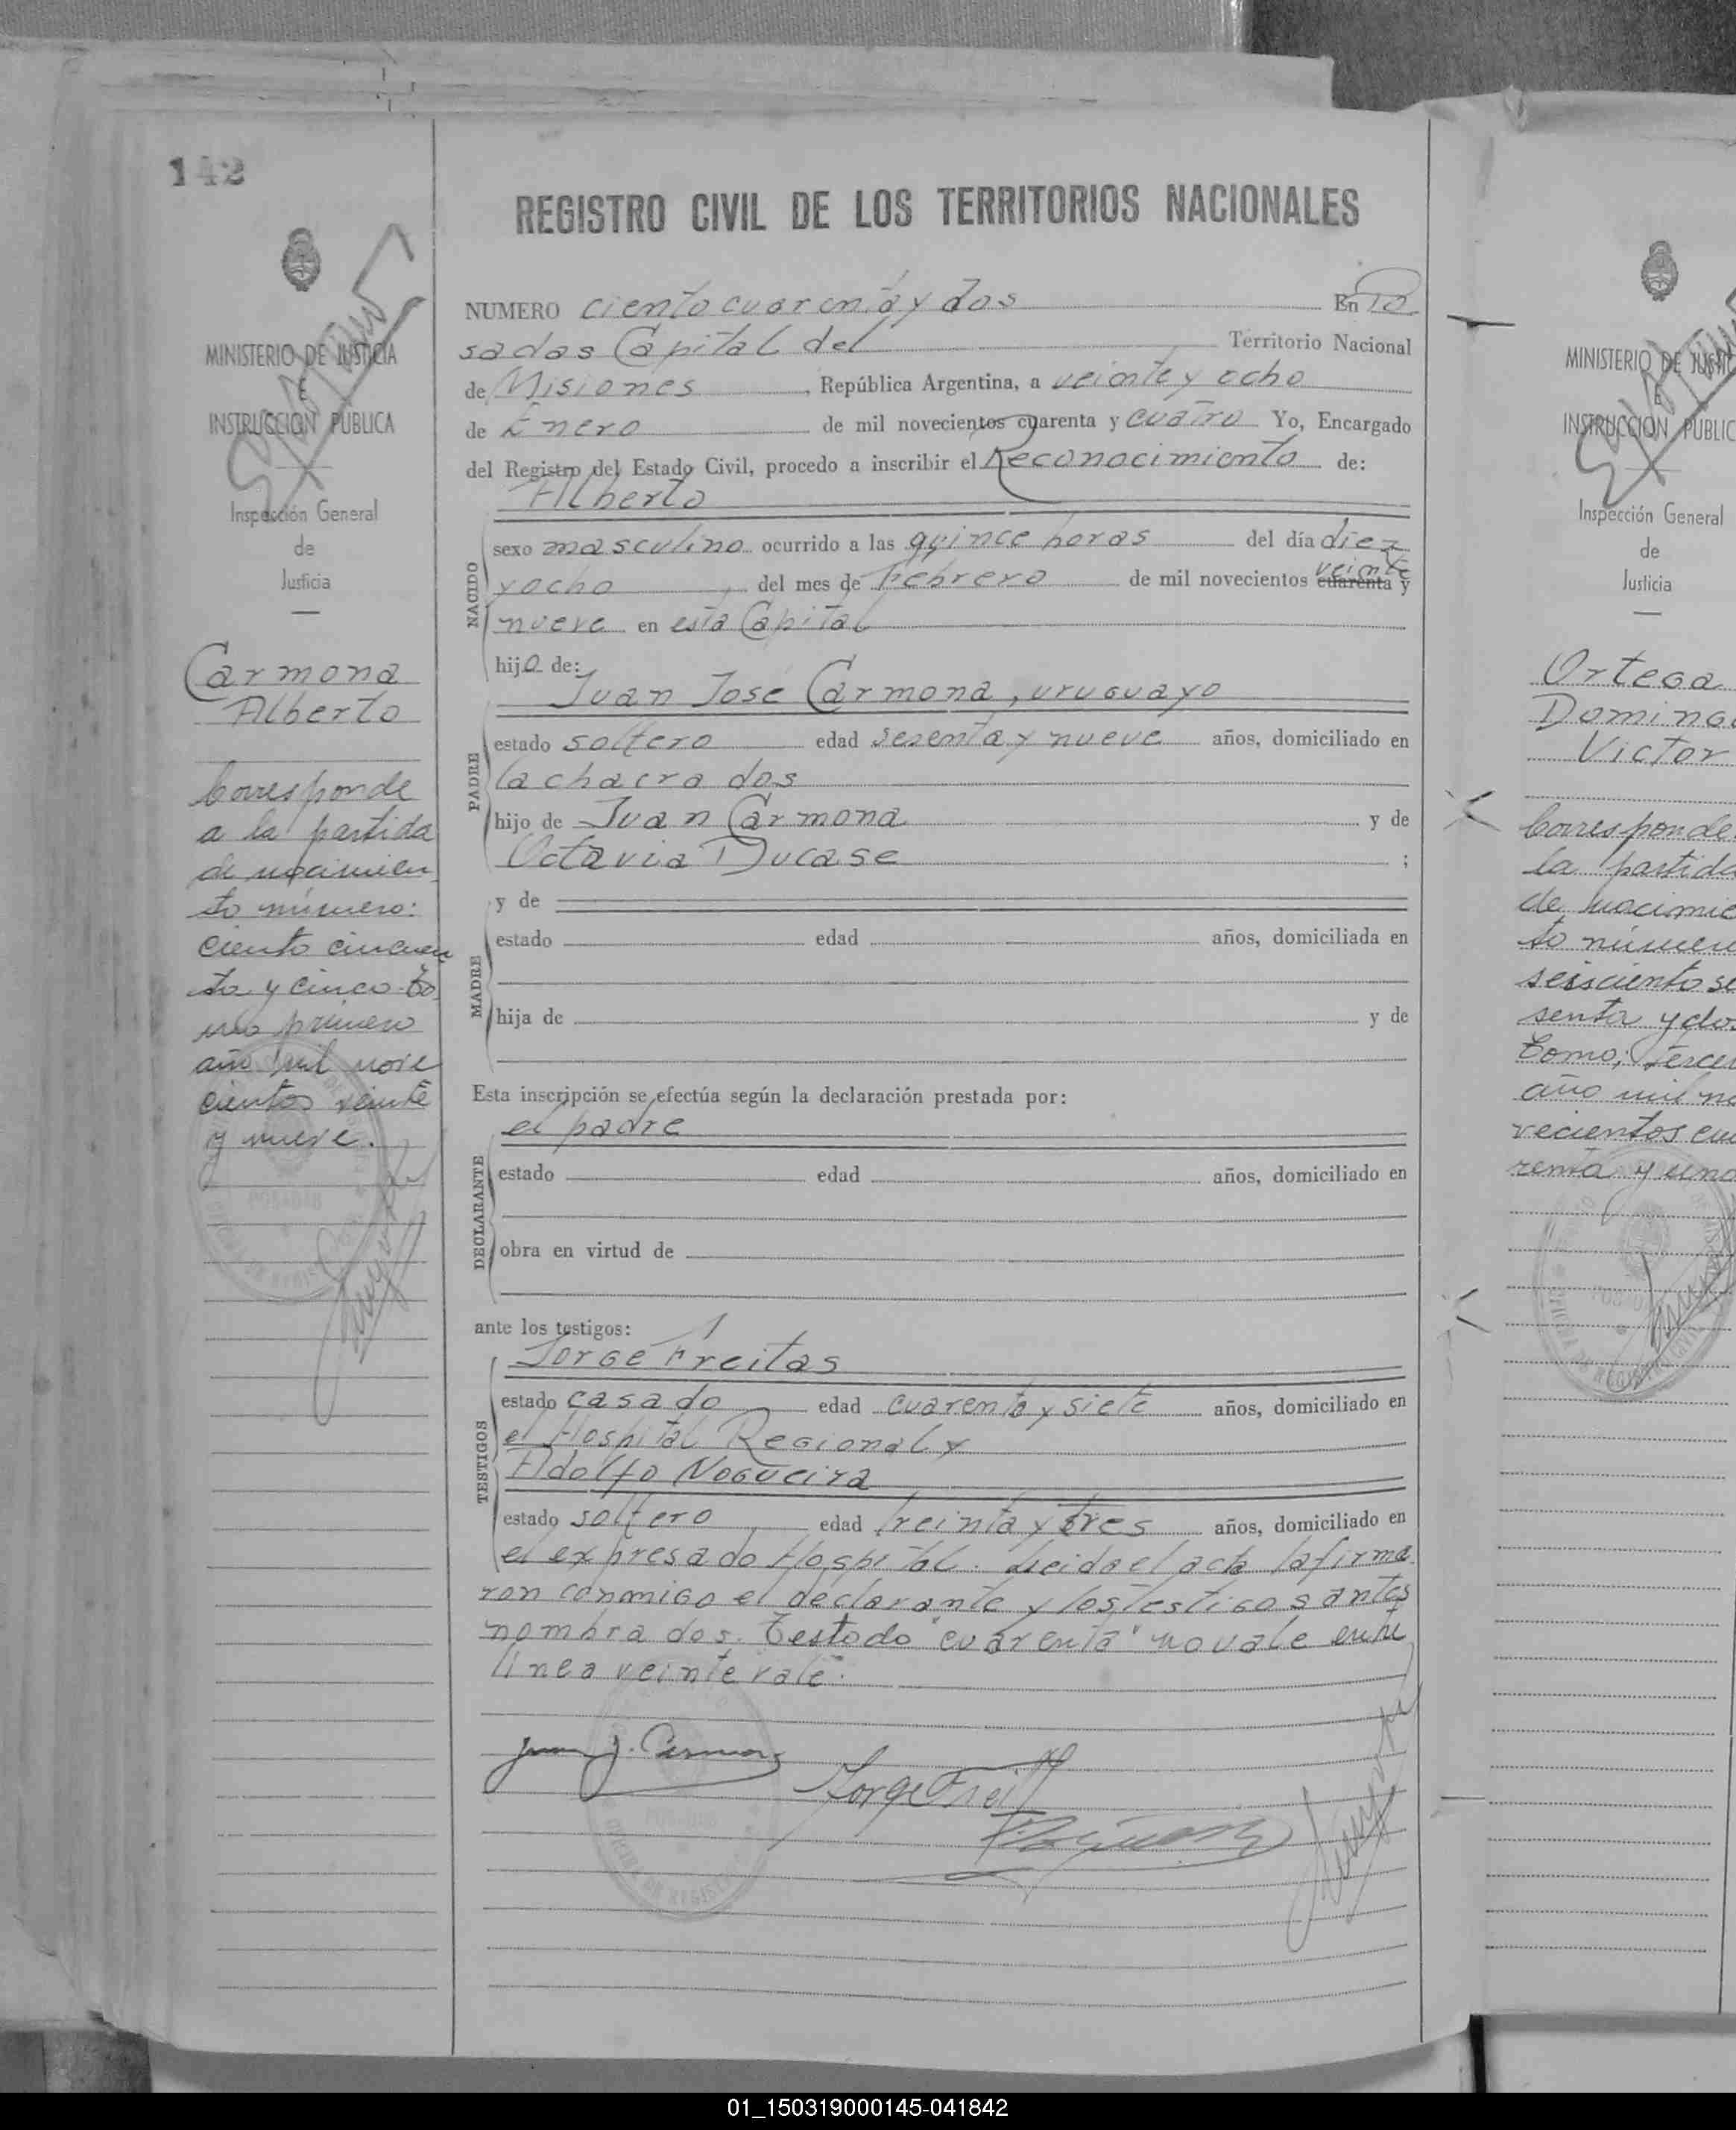 142
REGISTRO CIVIL DE LOS TERRITORIOS NACIONALES
MINISTERIO DE JUSTICIA
E
INSTRUCCION PUBLICA
Inspección General
de
Justicia
Carmona
Alberto
Corresponde
a la partida
de nacimien
to número:
ciento cincuen
ta y cinco to
mo primero
año mil nove
cientos veinte
y nueve.
NUMERO ciento cuarenta y dos En Po
sadas Capital del Territorio Nacional
de Misiones, República Argentina, a veinte y ocho
de Enero de mil novecientos cuarenta y cuatro Yo, Encargado
del Registro del Estado Civil, procedo a inscribir el Reconocimiento de:
Alberto
NACIDO
sexo masculino ocurrido a las quince horas del día diez
veinte
y ocho del mes de Febrero de mil novecientos cuarenta y
nueve en esta Capital
hijo de:
Juan José Carmona, uruguayo
PADRE
estado soltero edad sesenta y nueve años, domiciliado en
la chacra dos
hijo de Juan Carmona y de
Octavia Ducase ;
y de
MADRE
estado edad años, domiciliada en
hija de y de
Esta inscripción se efectúa según la declaración prestada por:
el padre
DECLARANTE
estado edad años, domiciliado en
obra en virtud de
ante los testigos:
Jorge Freitas
TESTIGOS
estado casado edad cuarenta y siete años, domiciliado en
el Hospital Regional y
Adolfo Nogueira
estado soltero edad treinta y tres años, domiciliado en
el expresado Hospital. Leida el acta la firma
ron conmigo el declarante y los testigos antes
nombrados. Testado "cuarenta" no vale entre
línea veinte vale.
Juan J. Carmona
Jorge Freitas
MINISTERIO DE JUSTIC
E
INSTRUCCION PUBLIC
Inspección General
de
Justicia
Ortega
Domingo
Victor
Corresponde
la partida
de nacimie
to número
seisciento se
senta y dos
tomo; tercer
año mil no
vecientos cua
renta y uno
01_150319000145-041842